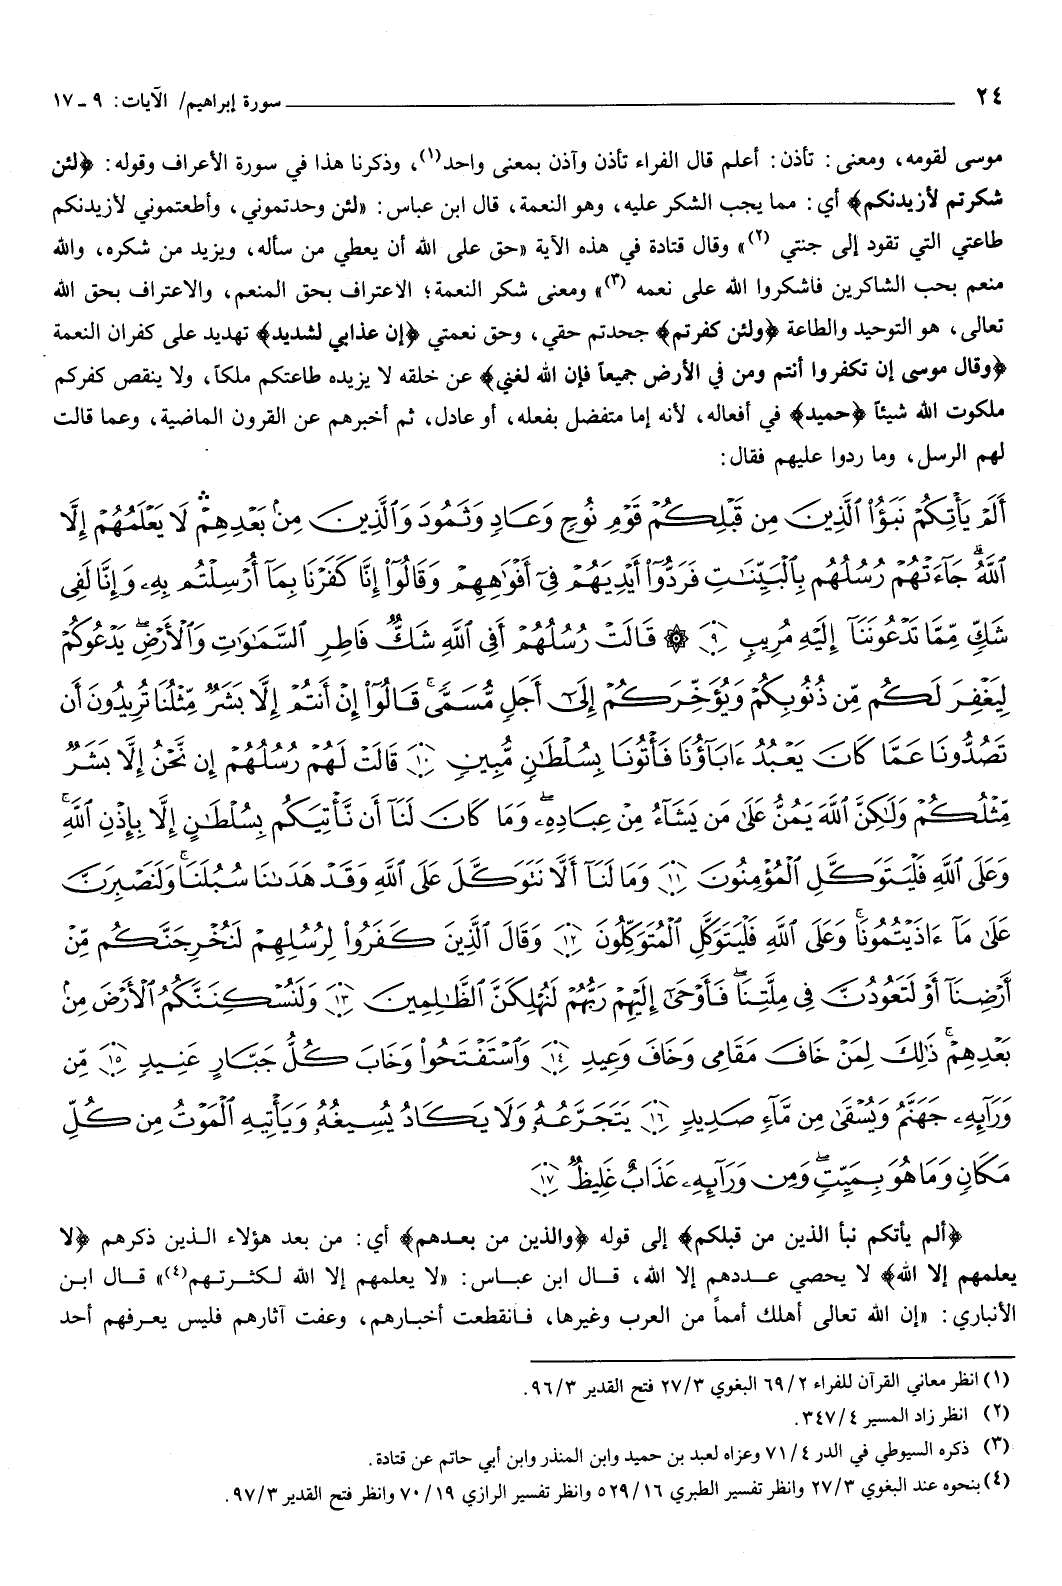 ٢٤ سورة إبراهيم/ الآيات: ٩ ـ ١٧
موسى لقومه، ومعنى: تأذن: أعلم قال الفراء تأذن وآذن بمعنى واحد(١)، وذكرنا هذا في سورة الأعراف وقوله: ﴿لئن
شكرتم لأزيدنكم﴾ أي: مما يجب الشكر عليه، وهو النعمة، قال ابن عباس: «لئن وحدتموني، وأطعتموني لأزيدنكم
طاعتي التي تقود إلى جنتي (٢)» وقال قتادة في هذه الآية «حق على الله أن يعطي من سأله، ويزيد من شكره، والله
منعم بحب الشاكرين فاشكروا الله على نعمه (٣)» ومعنى شكر النعمة؛ الاعتراف بحق المنعم، والاعتراف بحق الله
تعالى، هو التوحيد والطاعة ﴿ولئن كفرتم﴾ جحدتم حقي، وحق نعمتي ﴿إن عذابي لشديد﴾ تهديد على كفران النعمة
﴿وقال موسى إن تكفروا أنتم ومن في الأرض جميعاً فإن الله لغني﴾ عن خلقه لا يزيده طاعتكم ملكاً، ولا ينقص كفركم
ملكوت الله شيئاً ﴿حميد﴾ في أفعاله، لأنه إما متفضل بفعله، أو عادل، ثم أخبرهم عن القرون الماضية، وعما قالت
لهم الرسل، وما ردوا عليهم فقال:
أَلَمْ يَأْتِكُمْ نَبَؤُا۟ ٱلَّذِينَ مِن قَبْلِكُمْ قَوْمِ نُوحٍ وَعَادٍ وَثَمُودَ وَٱلَّذِينَ مِنۢ بَعْدِهِمْ ۛ لَا يَعْلَمُهُمْ إِلَّا
ٱللَّهُ ۚ جَآءَتْهُمْ رُسُلُهُم بِٱلْبَيِّنَٰتِ فَرَدُّوٓا۟ أَيْدِيَهُمْ فِىٓ أَفْوَٰهِهِمْ وَقَالُوٓا۟ إِنَّا كَفَرْنَا بِمَآ أُرْسِلْتُم بِهِۦ وَإِنَّا لَفِى
شَكٍّ مِّمَّا تَدْعُونَنَآ إِلَيْهِ مُرِيبٍ ٩ ۞ قَالَتْ رُسُلُهُمْ أَفِى ٱللَّهِ شَكٌّ فَاطِرِ ٱلسَّمَٰوَٰتِ وَٱلْأَرْضِ ۖ يَدْعُوكُمْ
لِيَغْفِرَ لَكُم مِّن ذُنُوبِكُمْ وَيُؤَخِّرَكُمْ إِلَىٰٓ أَجَلٍ مُّسَمًّى ۚ قَالُوٓا۟ إِنْ أَنتُمْ إِلَّا بَشَرٌ مِّثْلُنَا تُرِيدُونَ أَن
تَصُدُّونَا عَمَّا كَانَ يَعْبُدُ ءَابَآؤُنَا فَأْتُونَا بِسُلْطَٰنٍ مُّبِينٍ ١٠ قَالَتْ لَهُمْ رُسُلُهُمْ إِن نَّحْنُ إِلَّا بَشَرٌ
مِّثْلُكُمْ وَلَٰكِنَّ ٱللَّهَ يَمُنُّ عَلَىٰ مَن يَشَآءُ مِنْ عِبَادِهِۦ ۖ وَمَا كَانَ لَنَآ أَن نَّأْتِيَكُم بِسُلْطَٰنٍ إِلَّا بِإِذْنِ ٱللَّهِ ۚ
وَعَلَى ٱللَّهِ فَلْيَتَوَكَّلِ ٱلْمُؤْمِنُونَ ١١ وَمَا لَنَآ أَلَّا نَتَوَكَّلَ عَلَى ٱللَّهِ وَقَدْ هَدَىٰنَا سُبُلَنَا ۚ وَلَنَصْبِرَنَّ
عَلَىٰ مَآ ءَاذَيْتُمُونَا ۚ وَعَلَى ٱللَّهِ فَلْيَتَوَكَّلِ ٱلْمُتَوَكِّلُونَ ١٢ وَقَالَ ٱلَّذِينَ كَفَرُوا۟ لِرُسُلِهِمْ لَنُخْرِجَنَّكُم مِّنْ
أَرْضِنَآ أَوْ لَتَعُودُنَّ فِى مِلَّتِنَا ۖ فَأَوْحَىٰٓ إِلَيْهِمْ رَبُّهُمْ لَنُهْلِكَنَّ ٱلظَّٰلِمِينَ ١٣ وَلَنُسْكِنَنَّكُمُ ٱلْأَرْضَ مِنۢ
بَعْدِهِمْ ۚ ذَٰلِكَ لِمَنْ خَافَ مَقَامِى وَخَافَ وَعِيدِ ١٤ وَٱسْتَفْتَحُوا۟ وَخَابَ كُلُّ جَبَّارٍ عَنِيدٍ ١٥ مِّن
وَرَآئِهِۦ جَهَنَّمُ وَيُسْقَىٰ مِن مَّآءٍ صَدِيدٍ ١٦ يَتَجَرَّعُهُۥ وَلَا يَكَادُ يُسِيغُهُۥ وَيَأْتِيهِ ٱلْمَوْتُ مِن كُلِّ
مَكَانٍ وَمَا هُوَ بِمَيِّتٍ ۖ وَمِن وَرَآئِهِۦ عَذَابٌ غَلِيظٌ ١٧
﴿ألم يأتكم نبأ الذين من قبلكم﴾ إلى قوله ﴿والذين من بعدهم﴾ أي: من بعد هؤلاء الذين ذكرهم ﴿لا
يعلمهم إلا الله﴾ لا يحصي عددهم إلا الله، قال ابن عباس: «لا يعلمهم إلا الله لكثرتهم(٤)» قال ابن
الأنباري: «إن الله تعالى أهلك أمماً من العرب وغيرها، فانقطعت أخبارهم، وعفت آثارهم فليس يعرفهم أحد
(١) انظر معاني القرآن للفراء ٦٩/٢ البغوي ٢٧/٣ فتح القدير ٩٦/٣.
(٢) انظر زاد المسير ٣٤٧/٤.
(٣) ذكره السيوطي في الدر ٧١/٤ وعزاه لعبد بن حميد وابن المنذر وابن أبي حاتم عن قتادة.
(٤) بنحوه عند البغوي ٢٧/٣ وانظر تفسير الطبري ٥٢٩/١٦ وانظر تفسير الرازي ٧٠/١٩ وانظر فتح القدير ٩٧/٣.